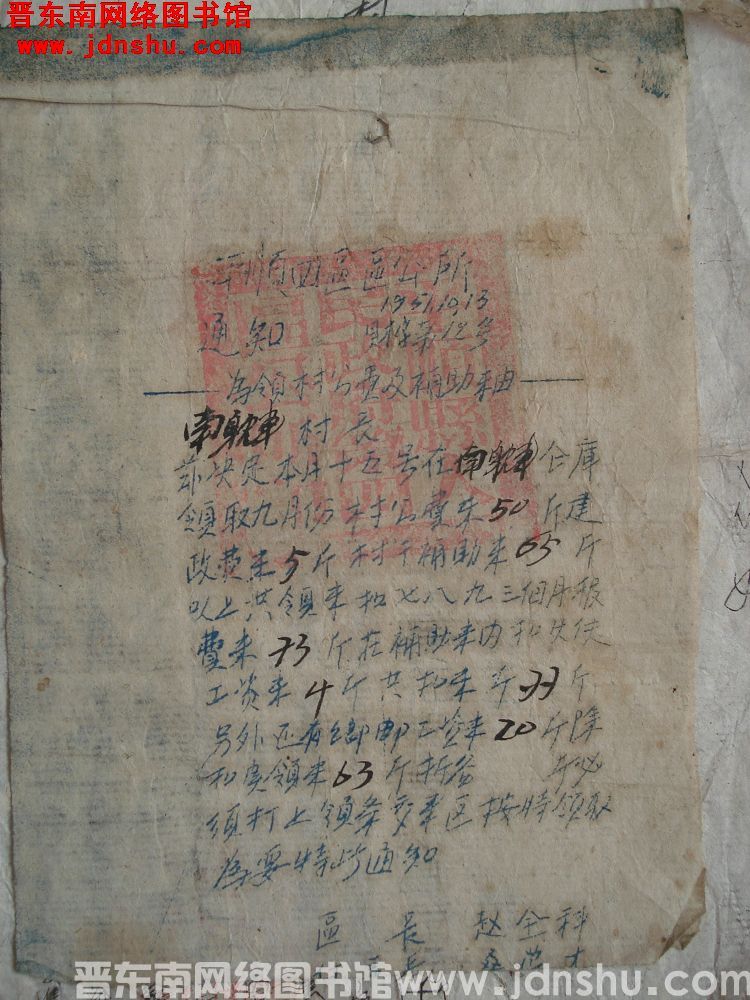 晋东南网络图书馆
www.jdnshu.com
平顺四區區公所
1951.10.13
通知 財粮第12号
为領村公費及補助来由
南軌車村長
兹决定本月十五号在南軌車仓庫
領取九月份村公費米50斤建
政費米5斤村干補助米65斤
以上共領米扣七八九三個月报
費米73斤在補助米内扣伕
工资米4斤共扣米斤77斤
另外还有乡邮工资米20斤除
扣实領米63斤折谷 斤必
須打上領条到区按時領取
为要特此通知
區長 赵全科
晋东南网络图书馆 www.jdnshu.com